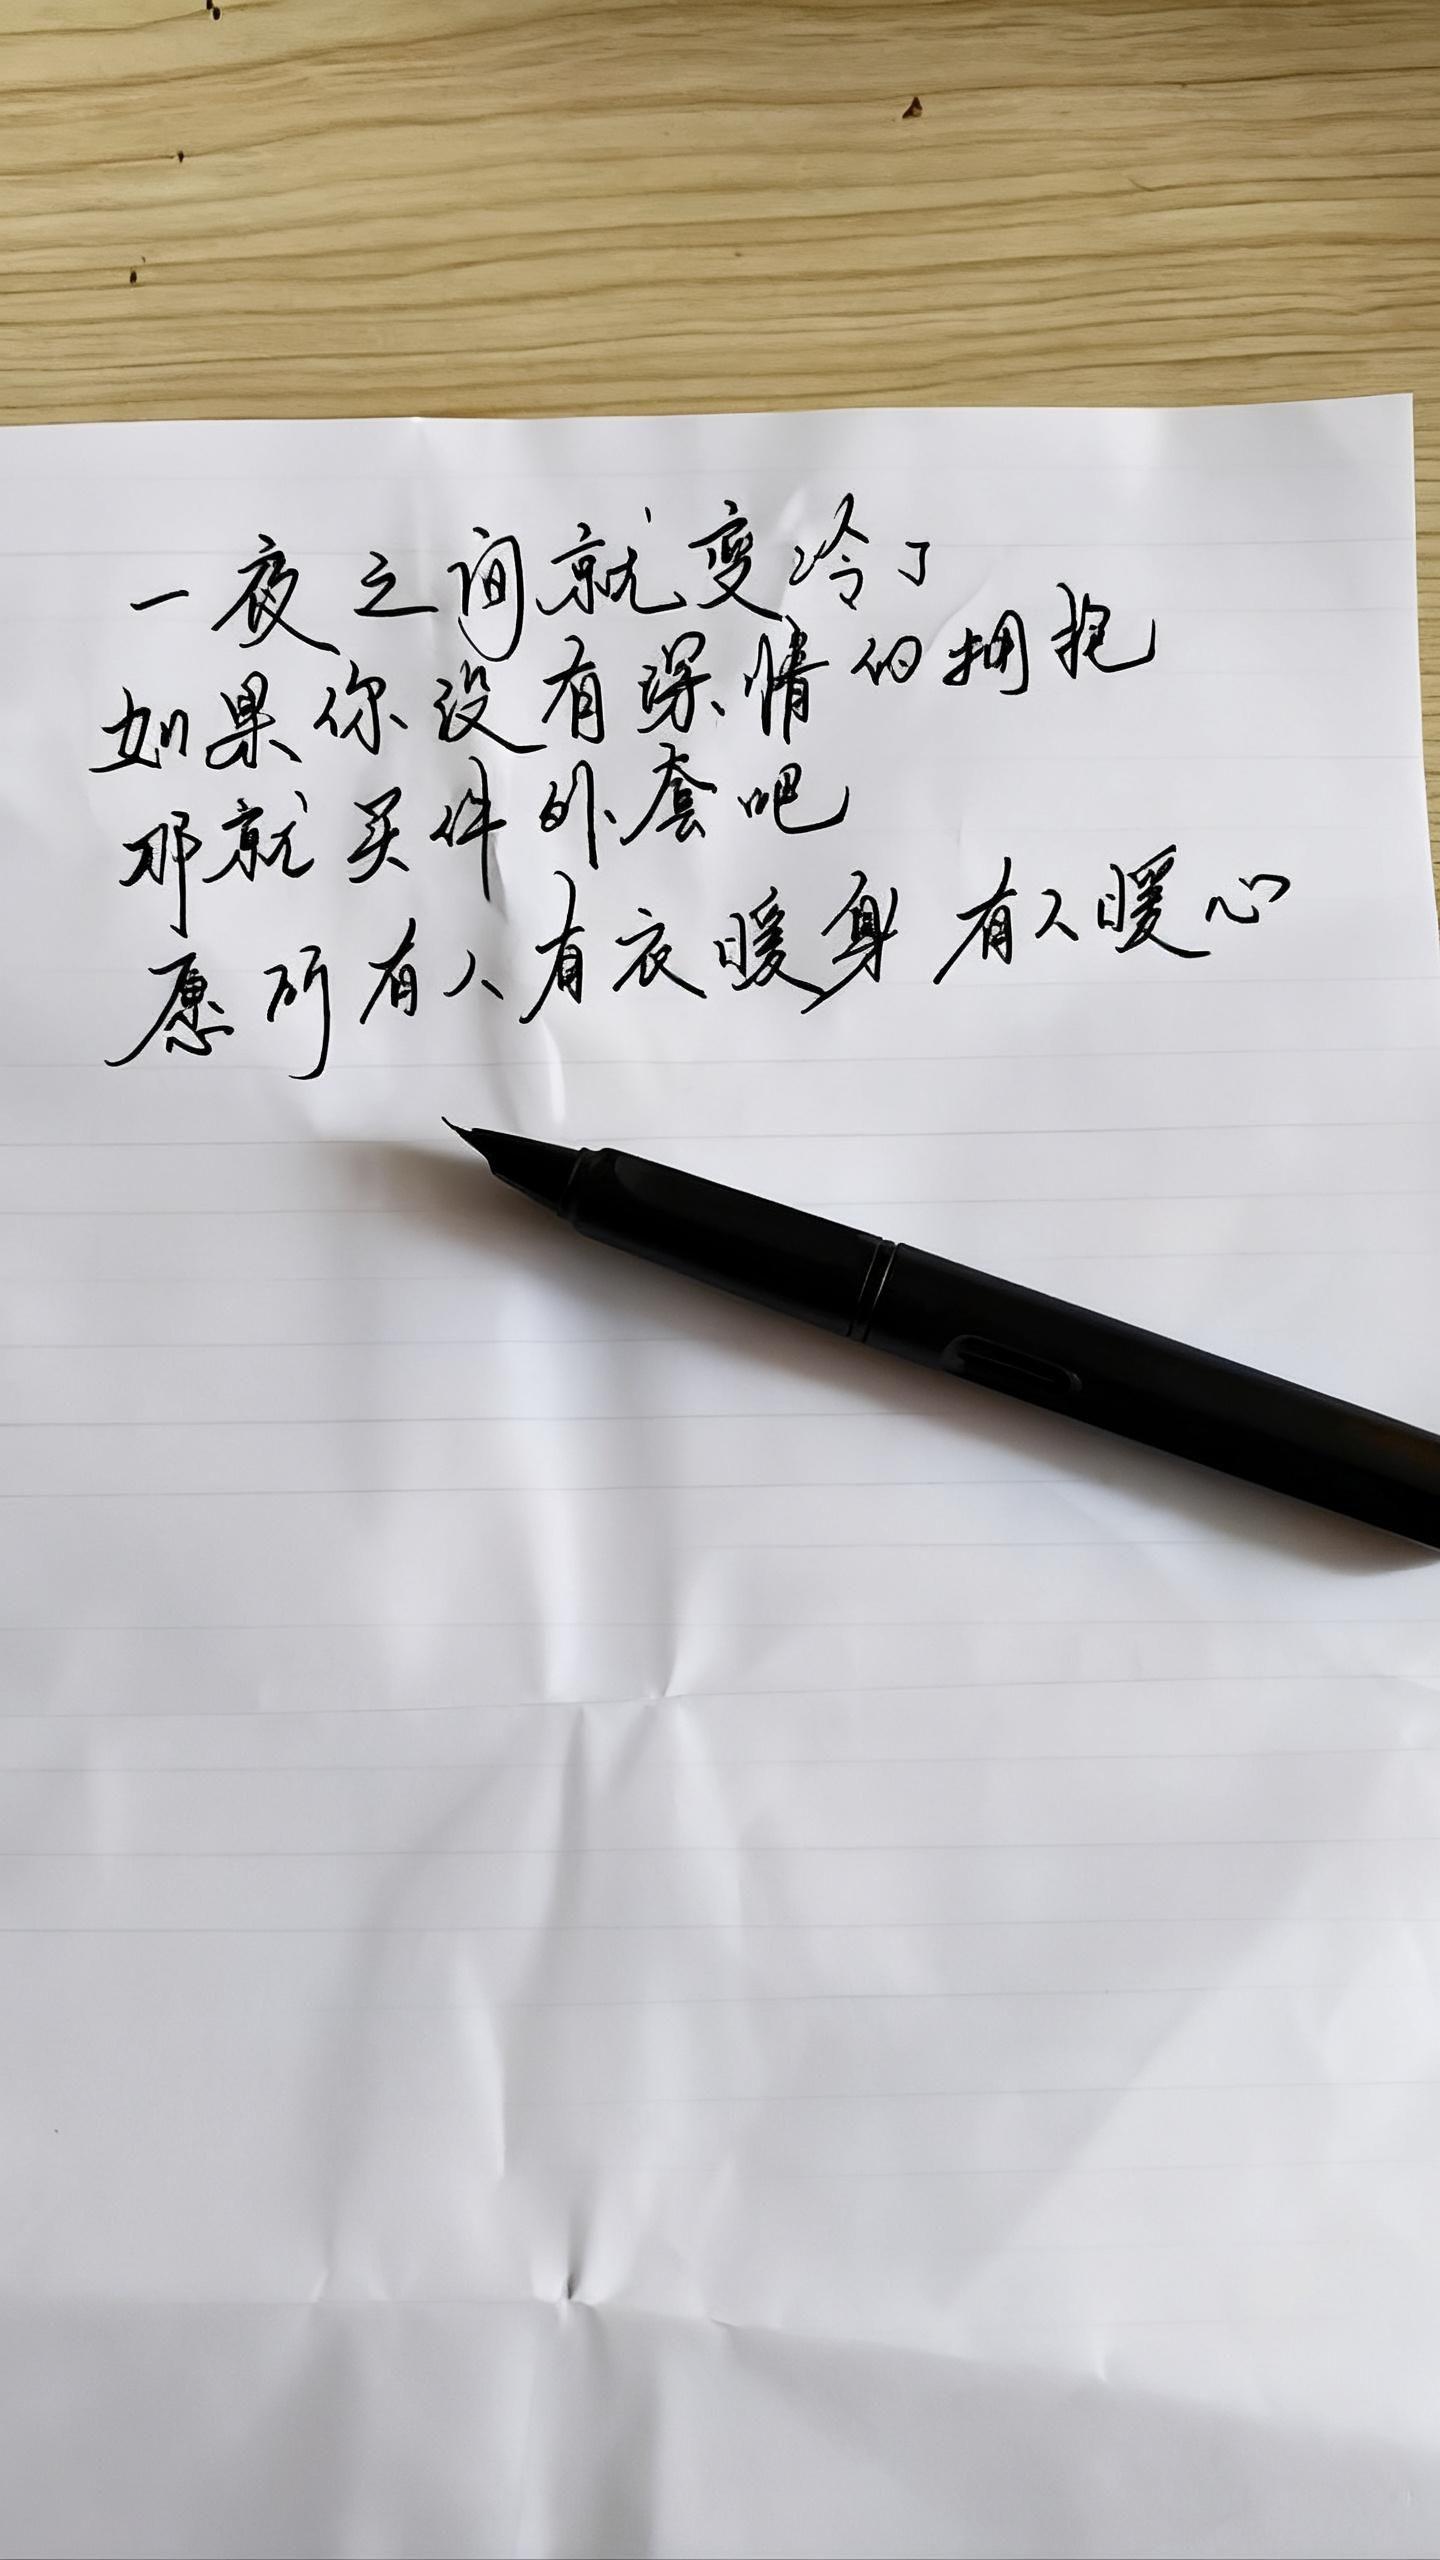 一夜之间就变冷了
如果你没有深情的拥抱
那就买件外套吧
愿所有人有衣暖身 有人暖心